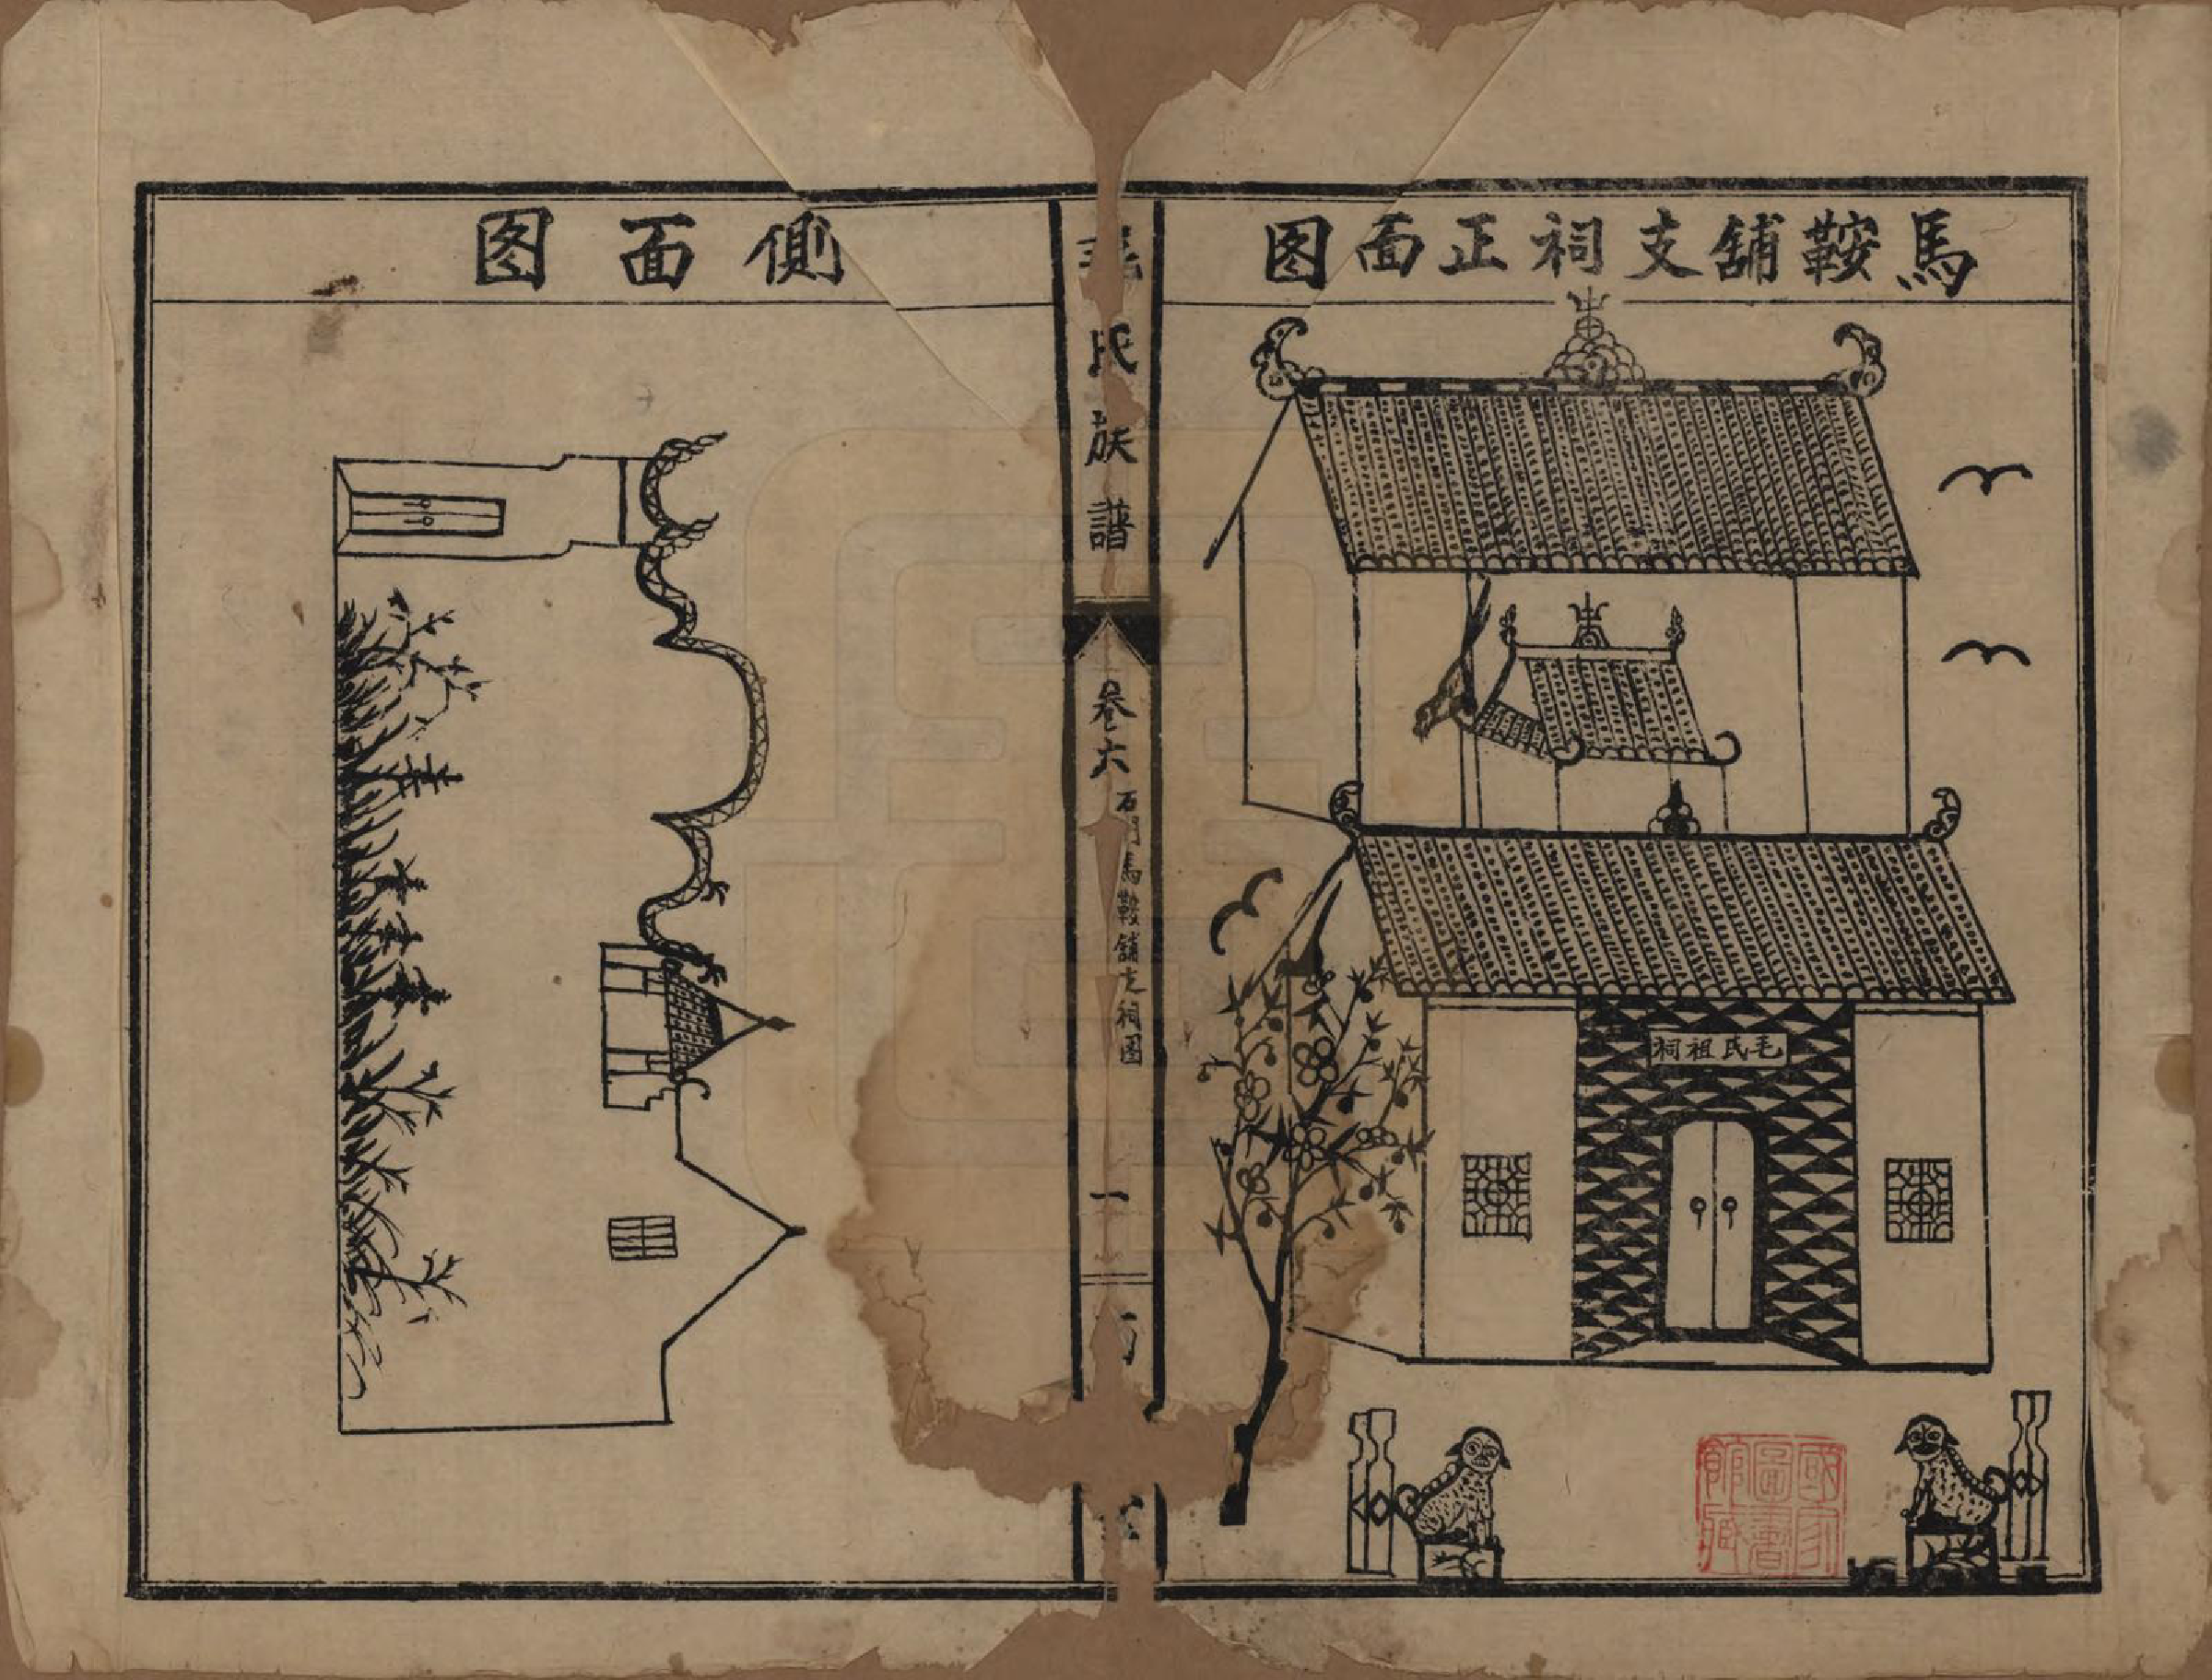 馬鞍舖支祠正面图
毛氏祖祠
國家圖書館藏
毛氏族譜
卷六
石門馬鞍舖支祠图
一
側面图